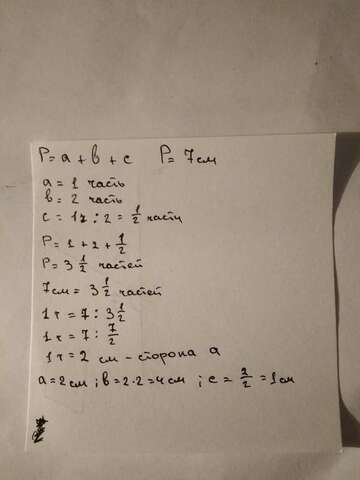 P = a + b + c P = 7 см
a = 1 часть
b = 2 часть
c = 1ч : 2 = 1/2 части
P = 1 + 2 + 1/2
P = 3 1/2 частей
7 см = 3 1/2 частей
1ч = 7 : 3 1/2
1ч = 7 : 7/2
1ч = 2 см - сторона a
a = 2 см ; b = 2 · 2 = 4 см ; c = 2/2 = 1 см